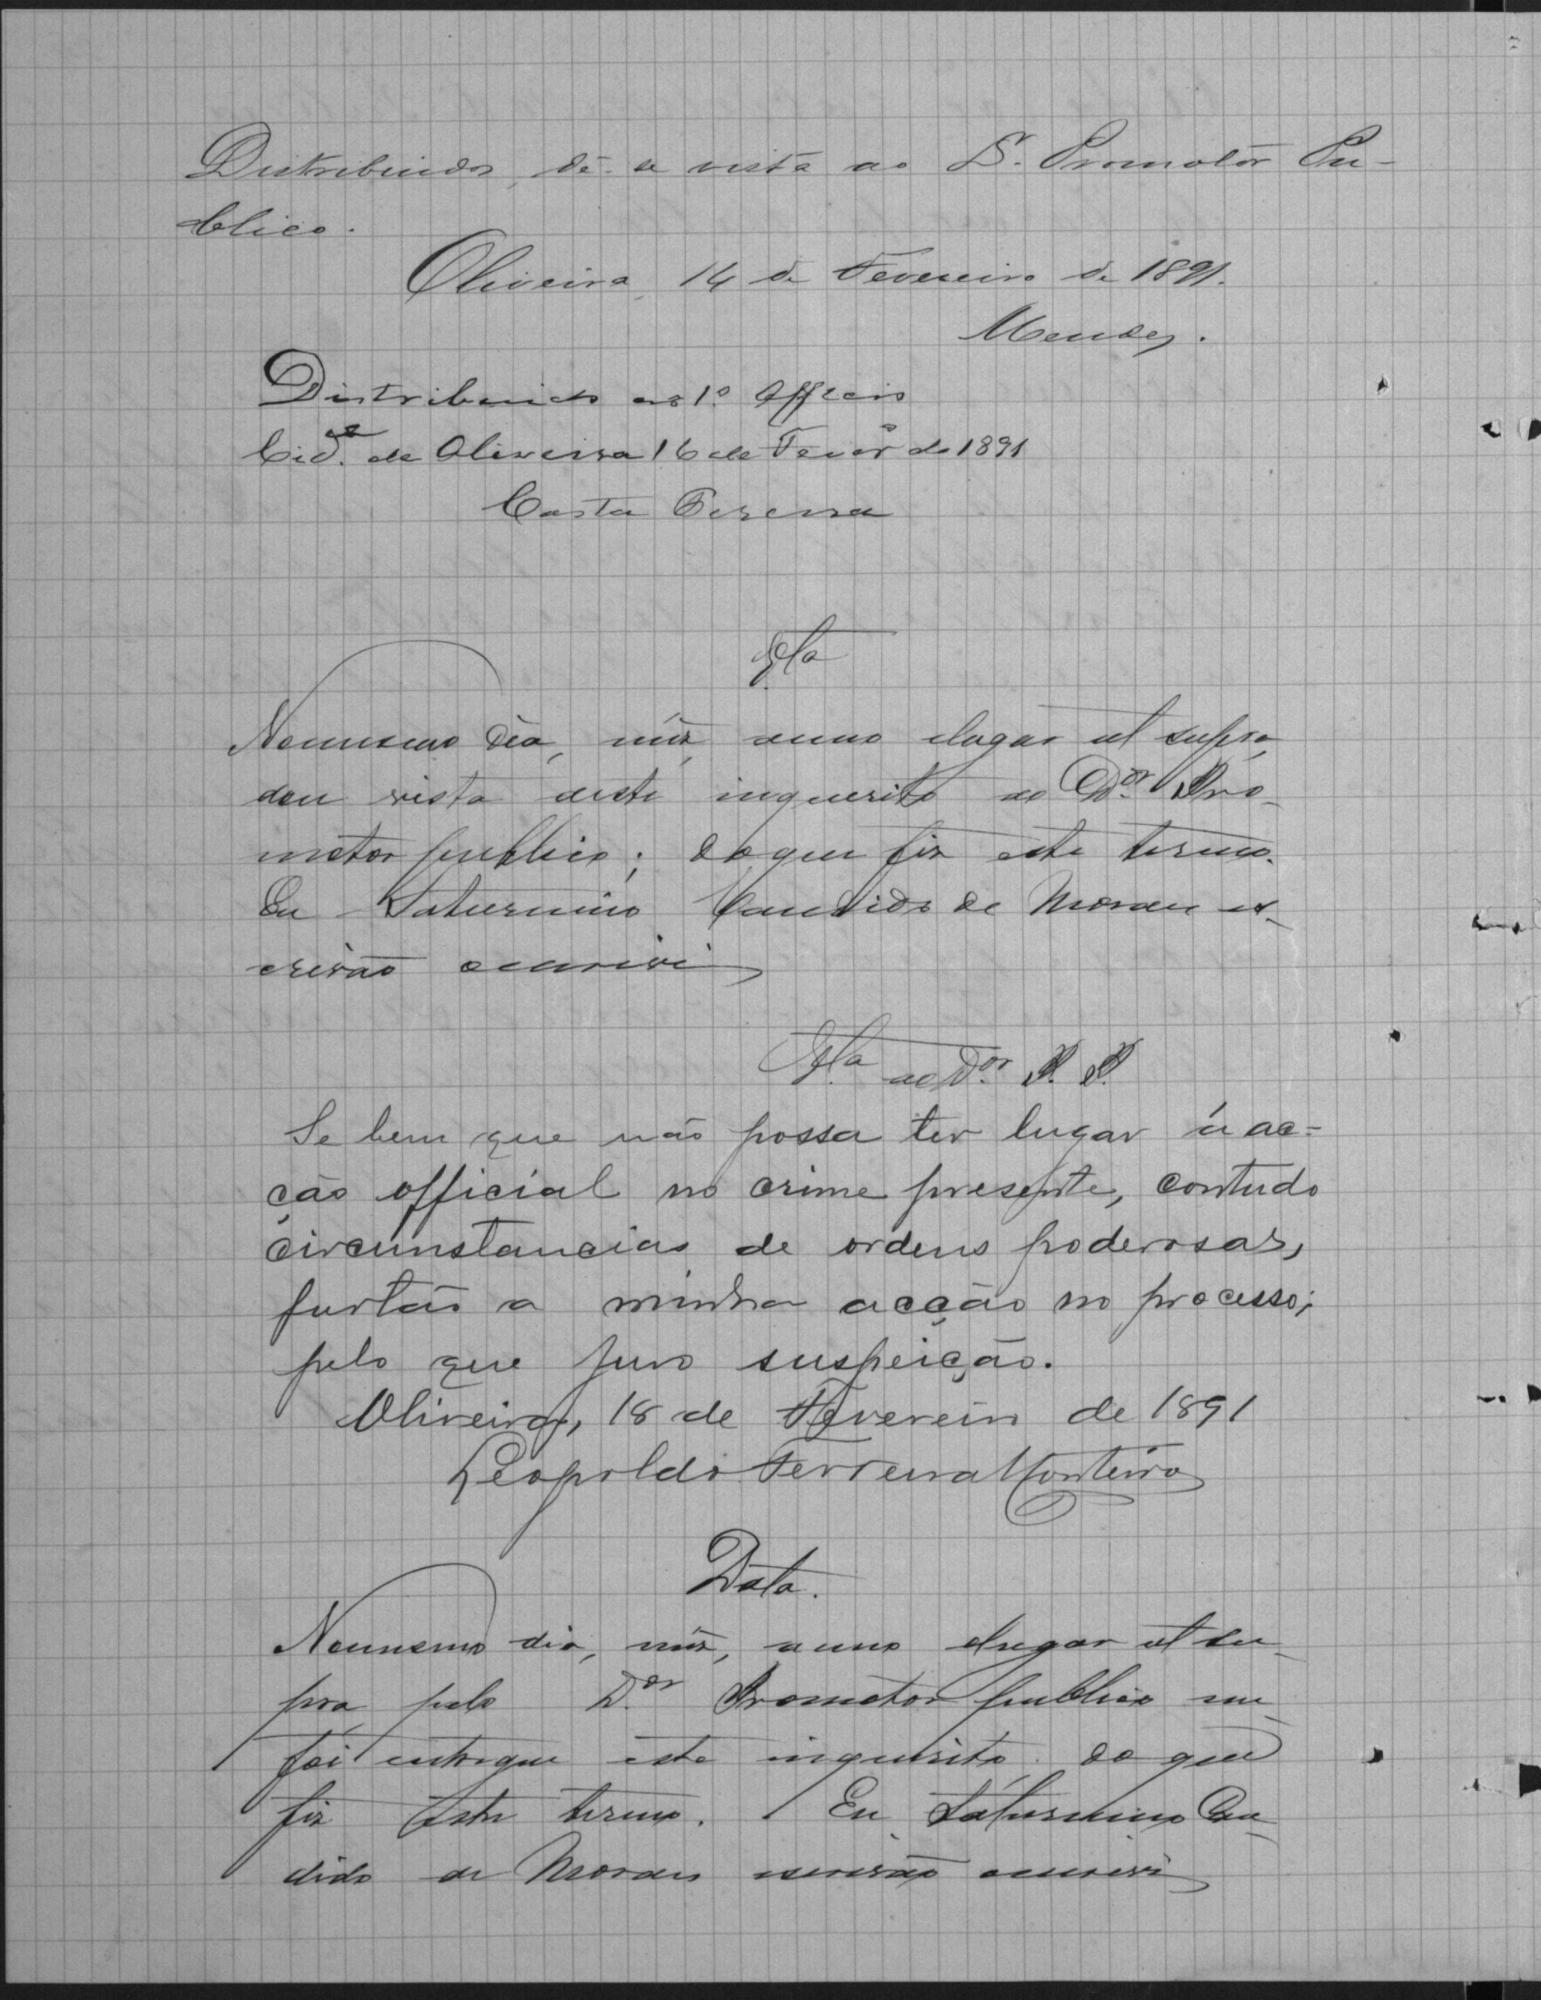 Distribuidos, dê-se vista ao Dr. Promotor Pu-
blico.
Oliveira, 14 de Fevereiro de 1891.
Mendes.
Distribuido ao 1º Officio
Cid.e de Oliveira 16 de Fever.o de 1891
Costa Pereira
V.ta
No mesmo dia, mez, anno e lugar ut supra,
dou vista deste inquerito ao Dor. Pro-
motor publico; do que fiz este termo.
Eu Saturnino Candido de Moraes es-
crivão escrivi
V.ta ao Dor. P. P.
Se bem que não possa ter lugar a ac-
ção official no crime presente, comtudo
circunstancias de ordens poderosas,
furtão a minha acção no processo;
pelo que juro suspeição.
Oliveira, 18 de Fevereiro de 1891
Leopoldo Ferreira Monteiro
Data.
No mesmo dia, mez, anno e lugar ut su-
pra, pelo Dor. Promotor publico me
foi entregue este inquerito, do que
fiz este termo. Eu Saturnino Can-
dido de Moraes escrivão escrivi